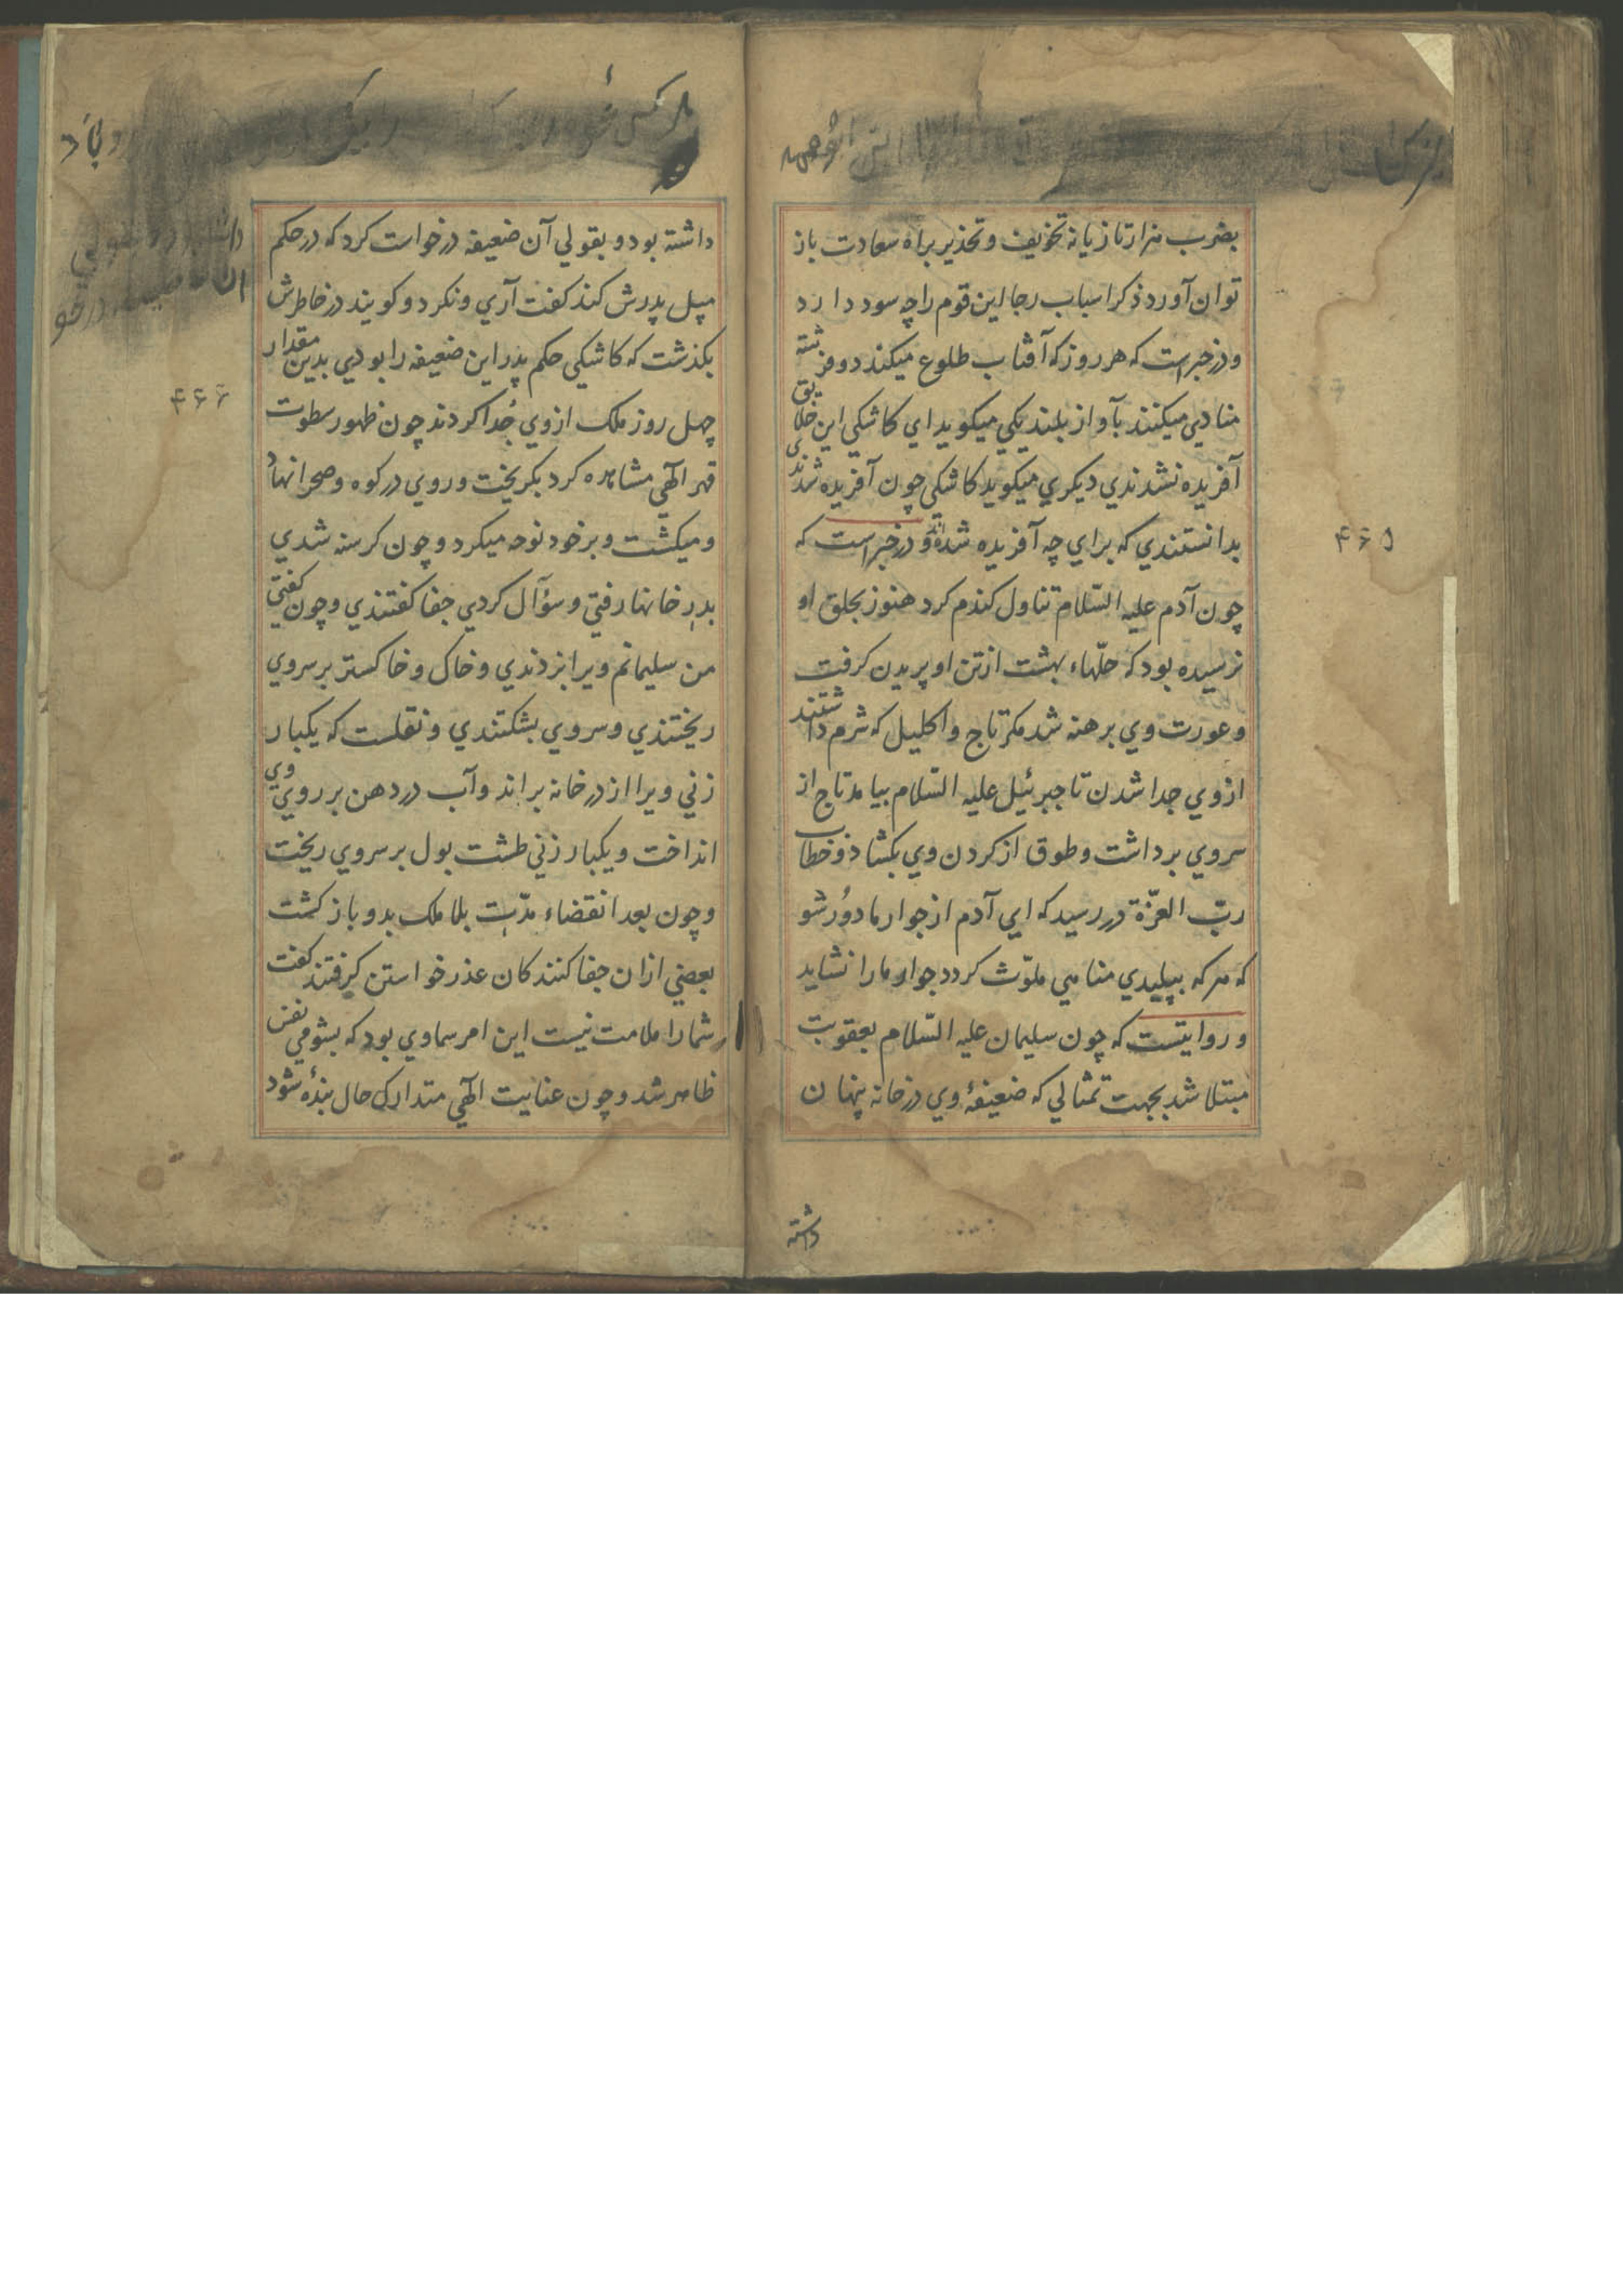 بضرب هزار تازیانه تخویف و تحذیر براه سعادت باز
توان آورد ذکر اسباب رجا این قوم را چه سود دارد
و در خبر است که هر روز که آفتاب طلوع میکند دو فرشته
منادی میکنند بآواز بلند یکي میکوید اي کاشکي این خلایق
آفریده نشدندي دیکري میکوید کاشکي چون آفریده شدندی
بدانستندي که براي چه آفریده شده‌اند و در خبر است که
چون آدم علیه السّلام تناول کندم کرد هنوز بحلق او
نرسیده بود که حلّهاء بهشت از تن او پریدن کرفت
و عورت وي برهنه شد مکر تاج و اکلیل که شرم داشتند
از وي جدا شدن تا جبرئیل علیه السّلام بیامد تاج از
سر وي برداشت و طوق از کردن وي بکشاد و خطاب
ربّ العزّة در رسید که اي آدم از جوار ما دُور شو
که هر که بپلیدي مناهي ملوّث کردد جوار ما را نشاید
و روایتست که چون سلیمان علیه السّلام بعقوبت
مبتلا شد بجهت تمثالي که ضعیفهٔ وي در خانه پنهان
داشته
۴۶۵
هر کس
داشته بود و بقولي آن ضعیفه درخواست کرد که در حکم
میل پدرش کند کفت آري و نکرد و کویند در خاطرش
بکذشت که کاشکي حکم پدر این ضعیفه را بودي بدین مقدار
چهل روز ملک از وي جُدا کردند چون ظهور سطوت
قهر الٓهي مشاهده کرد بکریخت و روي در کوه و صحرا نهاد
و میکشت و بر خود نوحه میکرد و چون کرسنه شدي
بدرِ خانها رفتي و سؤآل کردي جفا کفتندي و چون کفتي
من سلیمانم ویرا بزدندي و خاک و خاکستر بر سر وي
ریختندي و سر وي بشکستندي و نقلست که یکبار
زني ویرا از در خانه براند و آب در دهن بر روي وي
انداخت و یکبار زني طشت بول بر سر وي ریخت
و چون بعد انقضاء مدّت بلا ملک بدو باز کشت
بعضي از ان جفا کنندکان عذر خواستن کرفتند کفت
شما را ملامت نیست این امر سماوي بود که بشومي نفس
ظاهر شد و چون عنایت الٓهي متدارک حال بندهٔ شود
۴۶۶